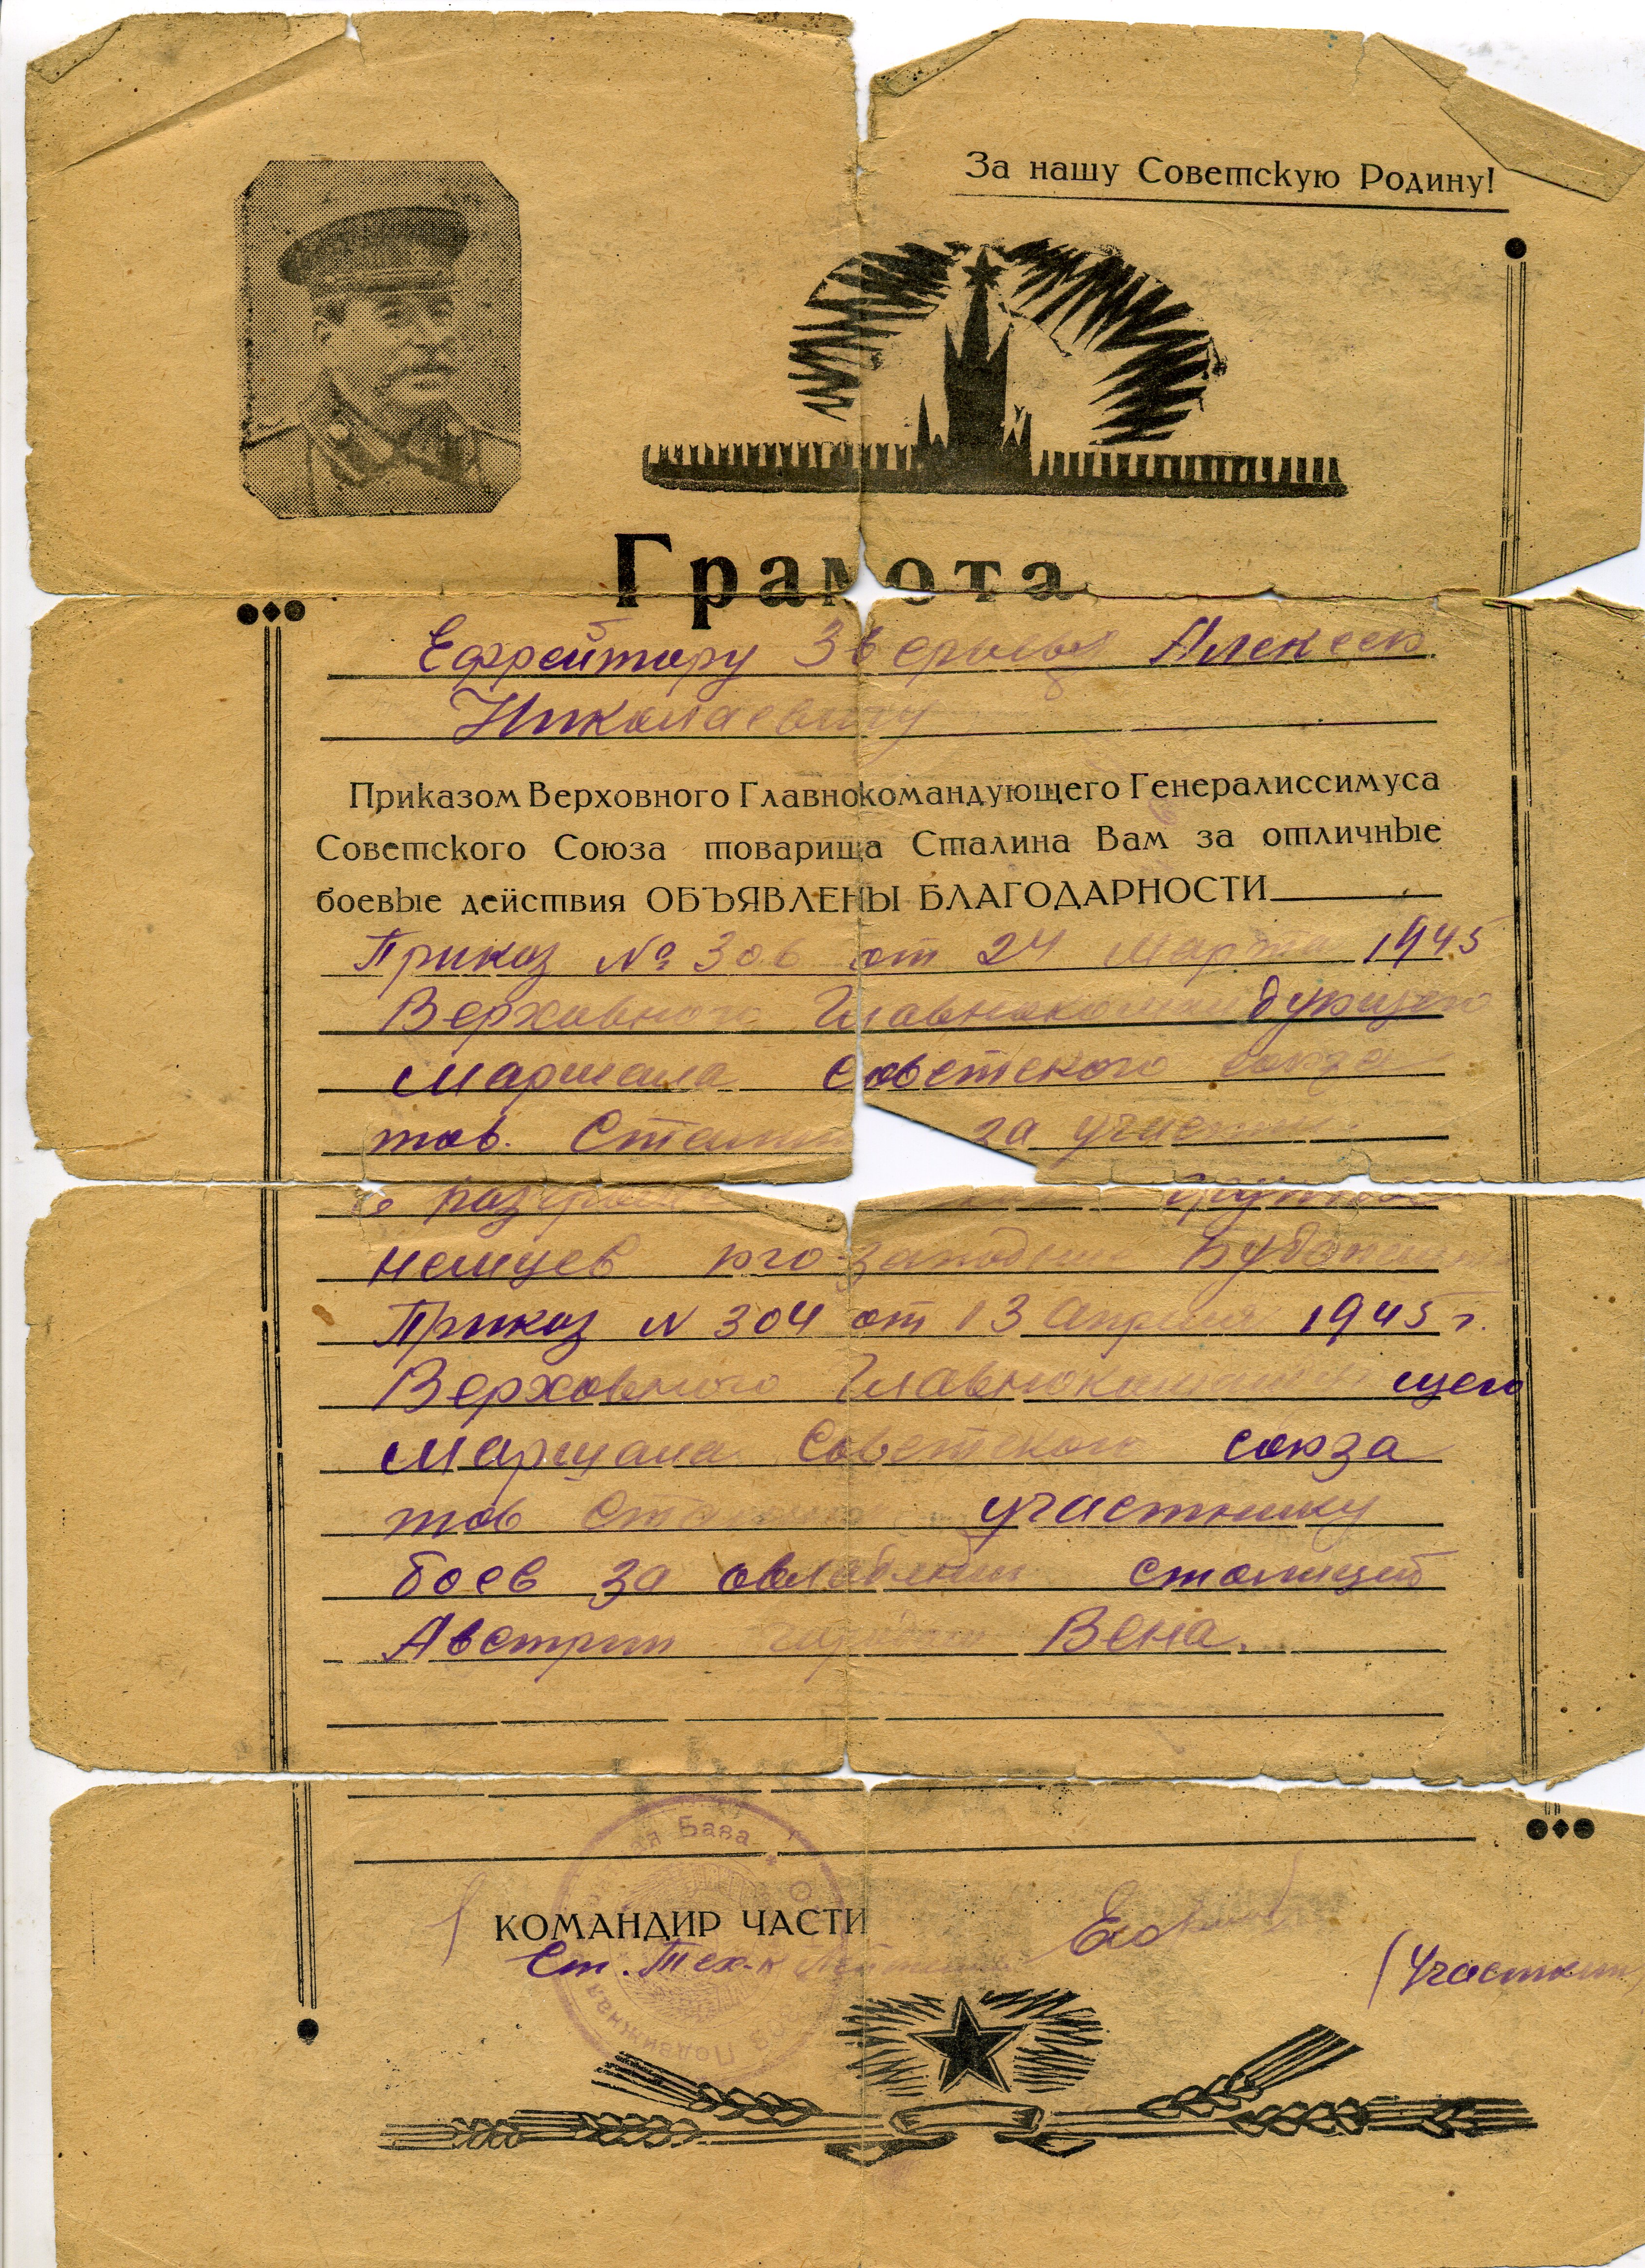 За нашу Советскую Родину!
Грамота
Ефрейтору Алексею
Николаевичу
Приказом Верховного Главнокомандующего Генералиссимуса
Советского Союза товарища Сталина Вам за отличные
боевые действия ОБЪЯВЛЕНЫ БЛАГОДАРНОСТИ
Приказ № 306 от 24 Марта 1945
Верховного Главнокомандующего
Маршала Советского союза
тов. за
немцев юго-
Приказ N 304 от 13 апреля 1945 г.
Верховного
Маршала Советского союза
тов участнику
боев за столицей
Австрии Вена.
База
КОМАНДИР ЧАСТИ
Ст. Тех-к
Подвижная